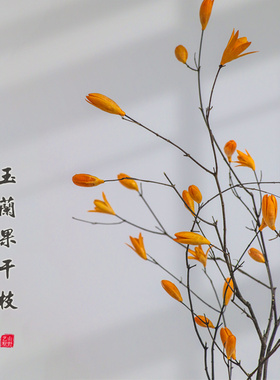 玉蘭果干枝